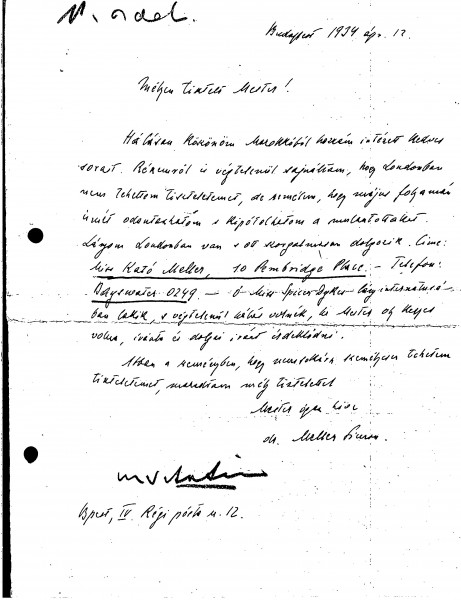 Budapest 1934 ápr. 12.
Mélyen tisztelt Mester!
Hálásan köszönöm Marokkóból hozzám intézett kedves
sorait. Részemről is végtelenül sajnáltam, hogy Londonban
nem tehettem tiszteletemet, de remélem, hogy május folyamán
ismét odautazhatom s kipótolhatom a mulasztottakat.
Lányom Londonban van s ott szorgalmasan dolgozik. Címe:
Miss Kató Meller, 10 Pembridge Place. – Telefon:
Bayswater 0249. – Ő Miss Spicer Dykes leányinternátusá-
ban lakik, s végtelenül hálás volnék, ha Mester oly kegyes
volna, iránta és dolgai iránt érdeklődni.
Abban a reményben, hogy nemsokára személyesen tehetem
tiszteletemet, maradtam mély tisztelettel
Mester igaz híve
dr. Meller Simon
Bpest, IV. Régi pósta u. 12.